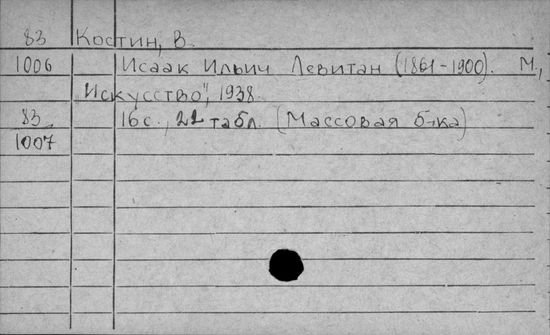 83 Костин, В.
1006 Исаак Ильич Левитан (1861-1900). М.,
"Искусство", 1938.
83 16 с., 22 табл. (Массовая б-ка)
1007